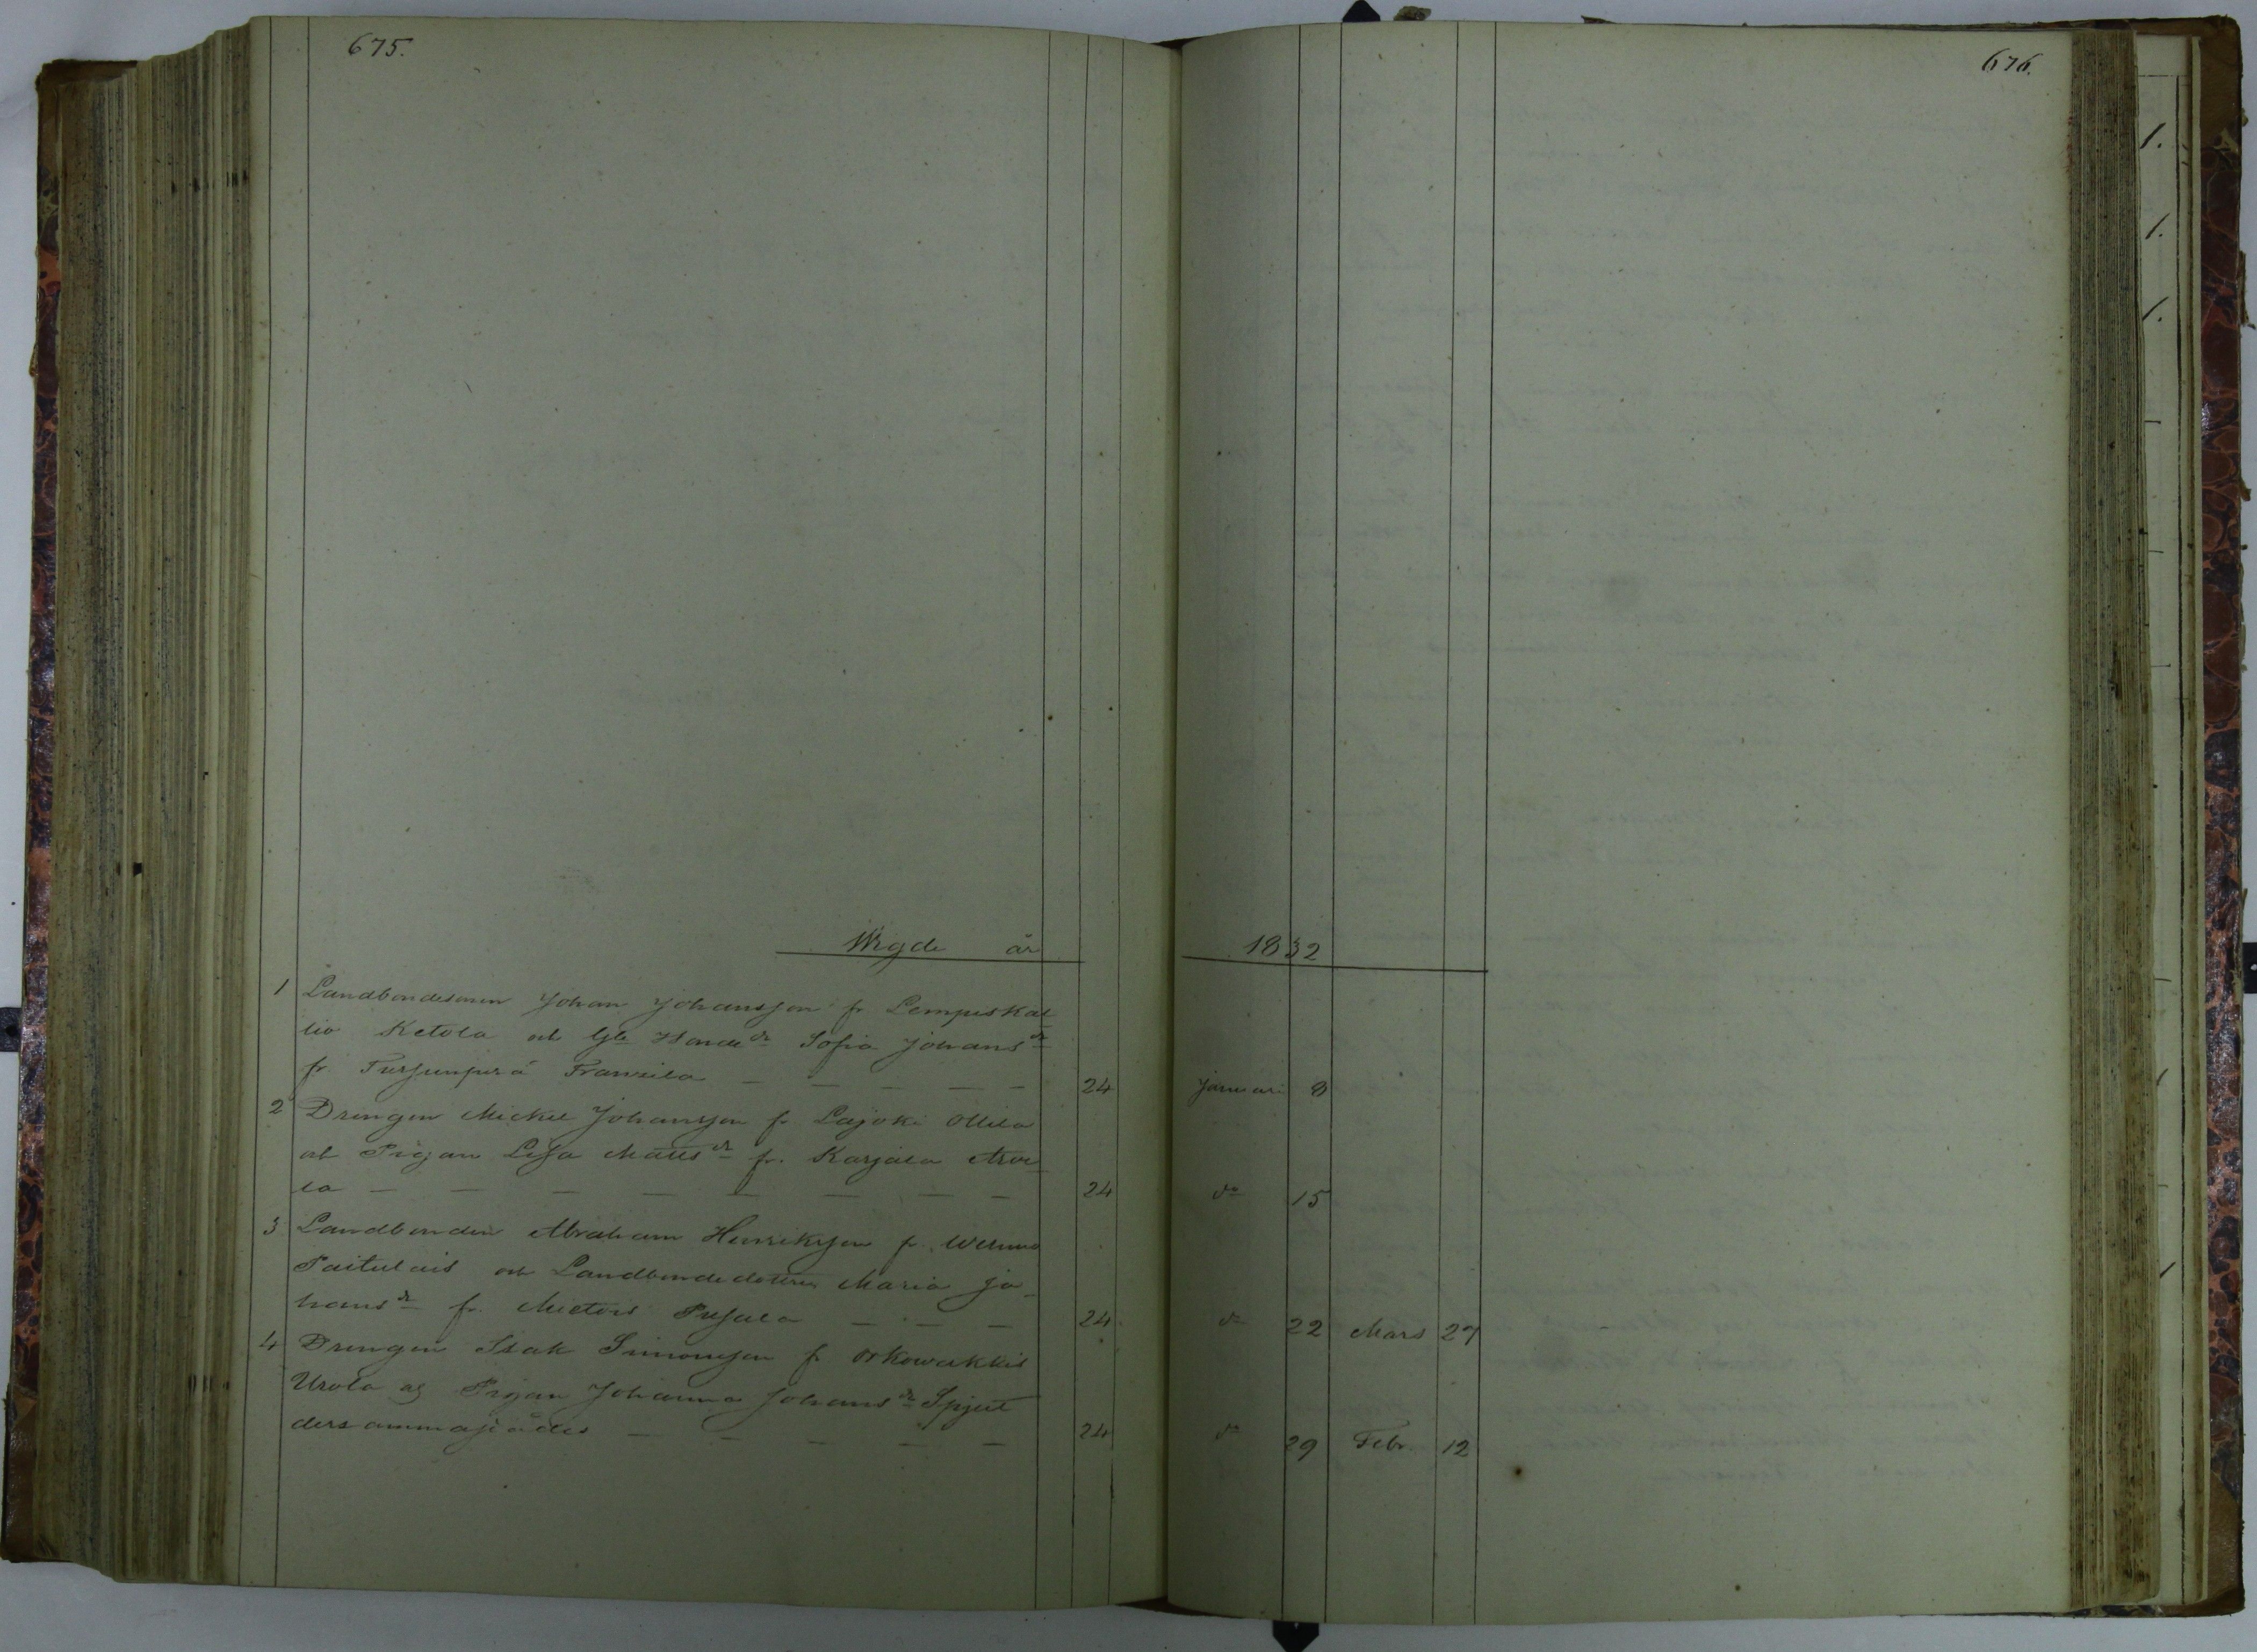 675.
676.
Wigde år 1832
1 Landbondesonen Johan Johansson fr Lempiskal
lio Ketola och Gle Honde dr Sofia Johans dr
fr. Tursunperä Franzila — — — — — 24 Januari 8
2 Drengen Mickel Johansson fr Lajoki Ollila
och Pigan Lisa Matts dr fr. Karjala Arve
la — — — — — — — — 24 do 15
3 Landbonden Abraham Henriksson fr Wehmo
Paitulais och Landbondedottren Maria Jo-
hans dr fr. Mietois Pusala — — — 24 do 22 Mars 27
4 Drengen Isak Simonsson fr Orkowerkkis
Urola och Pigan Johanna Johans dr Spjut
dersammastädes — — — — — 24 do 29 Febr. 12
1.
1.
1.